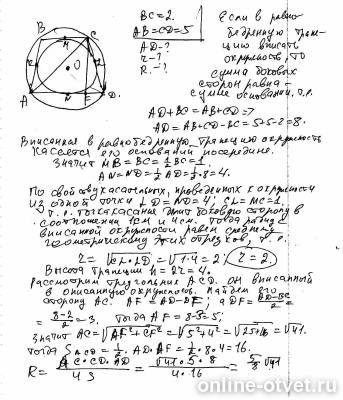 BC=2.
AB=CD=5
AD-?
r-?
R.-?
Если в равно
бедренную трапе
цию вписать
окружность, то
сумма боковых
сторон равна
сумме оснований, т.е.
AD+BC=AB+CD=7
AD=AB+CD-BC=5+5-2=8.
Вписанная в равнобедренную трапецию окружность
касается его основания посередине.
значит MB=BC=½BC=1.
AN=ND=½AD=½·8=4.
По свойству касательных, проведенных к окружности
из одной точки LD=ND=4; CL=MC=1.
т.е. точка касания делит боковую сторону в
соотношении 1см и 4см. Тогда радиус
вписанной окружности равен среднему
геометрическому этих отрезков, т.е.
r=√CL·LD=√1·4=2; r=2.
Высота трапеции h=2r=4.
Рассмотрим треугольник ACD. Он вписанный
в описанную окружность. Найдем его
сторону AC. AF=AD-DF; а DF=AD-BC/2=
=8-2/2=3. Тогда AF=8-3=5;
значит AC=√AF²+CF²=√5²+4²=√25+16=√41.
тогда S ACD=½·AD·CF=½·8·4=16.
R=AC·CD·AD/4S=√41·5·8/4·16=5/8√41
B
M
C
O
A
N
F
D
online-otvet.ru